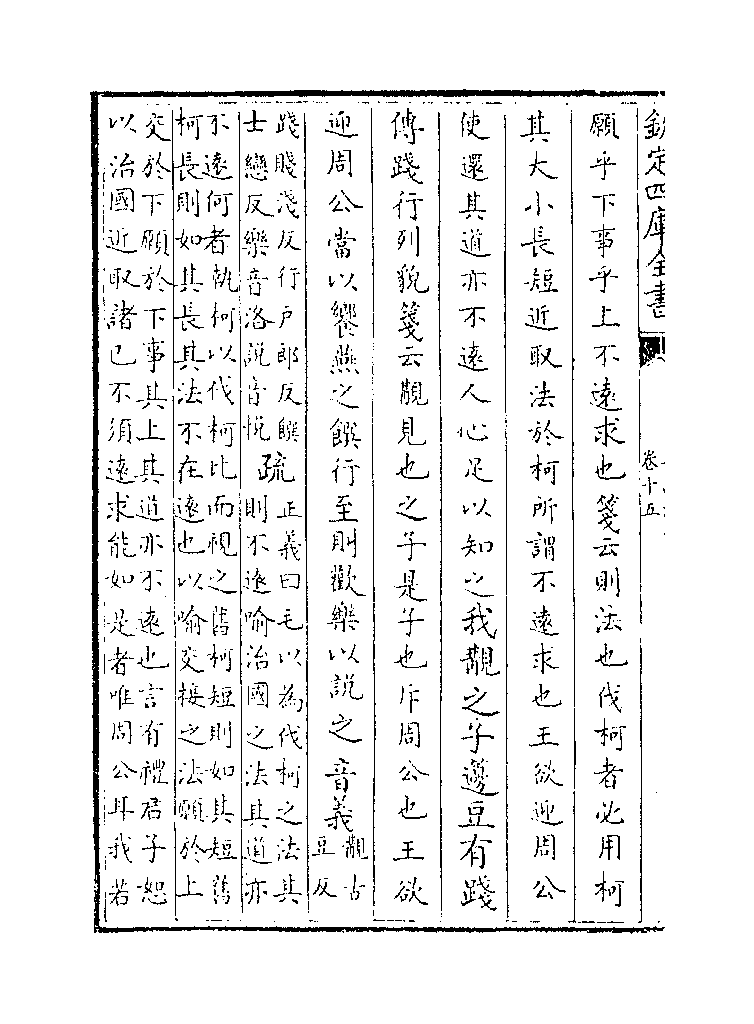 欽定四庫全書
卷十五
願乎下事乎上不遠求也箋云則法也伐柯者必用柯
其大小長短近取法於柯所謂不遠求也王欲迎周公
使還其道亦不遠人心足以知之我覯之子籩豆有踐
傳踐行列貌箋云覯見也之子是子也斥周公也王欲
迎周公當以饗燕之饌行至則歡樂以說之音義覯古
豆反
踐賤淺反行戶郎反饌
士戀反樂音洛說音悅疏正義曰毛以為伐柯之法其
則不遠喻治國之法其道亦
不遠何者執柯以伐柯比而視之舊柯短則如其短舊
柯長則如其長其法不在遠也以喻交接之法願於上
交於下願於下事其上其道亦不遠也言有禮君子恕
以治國近取諸己不須遠求能如是者唯周公耳我若